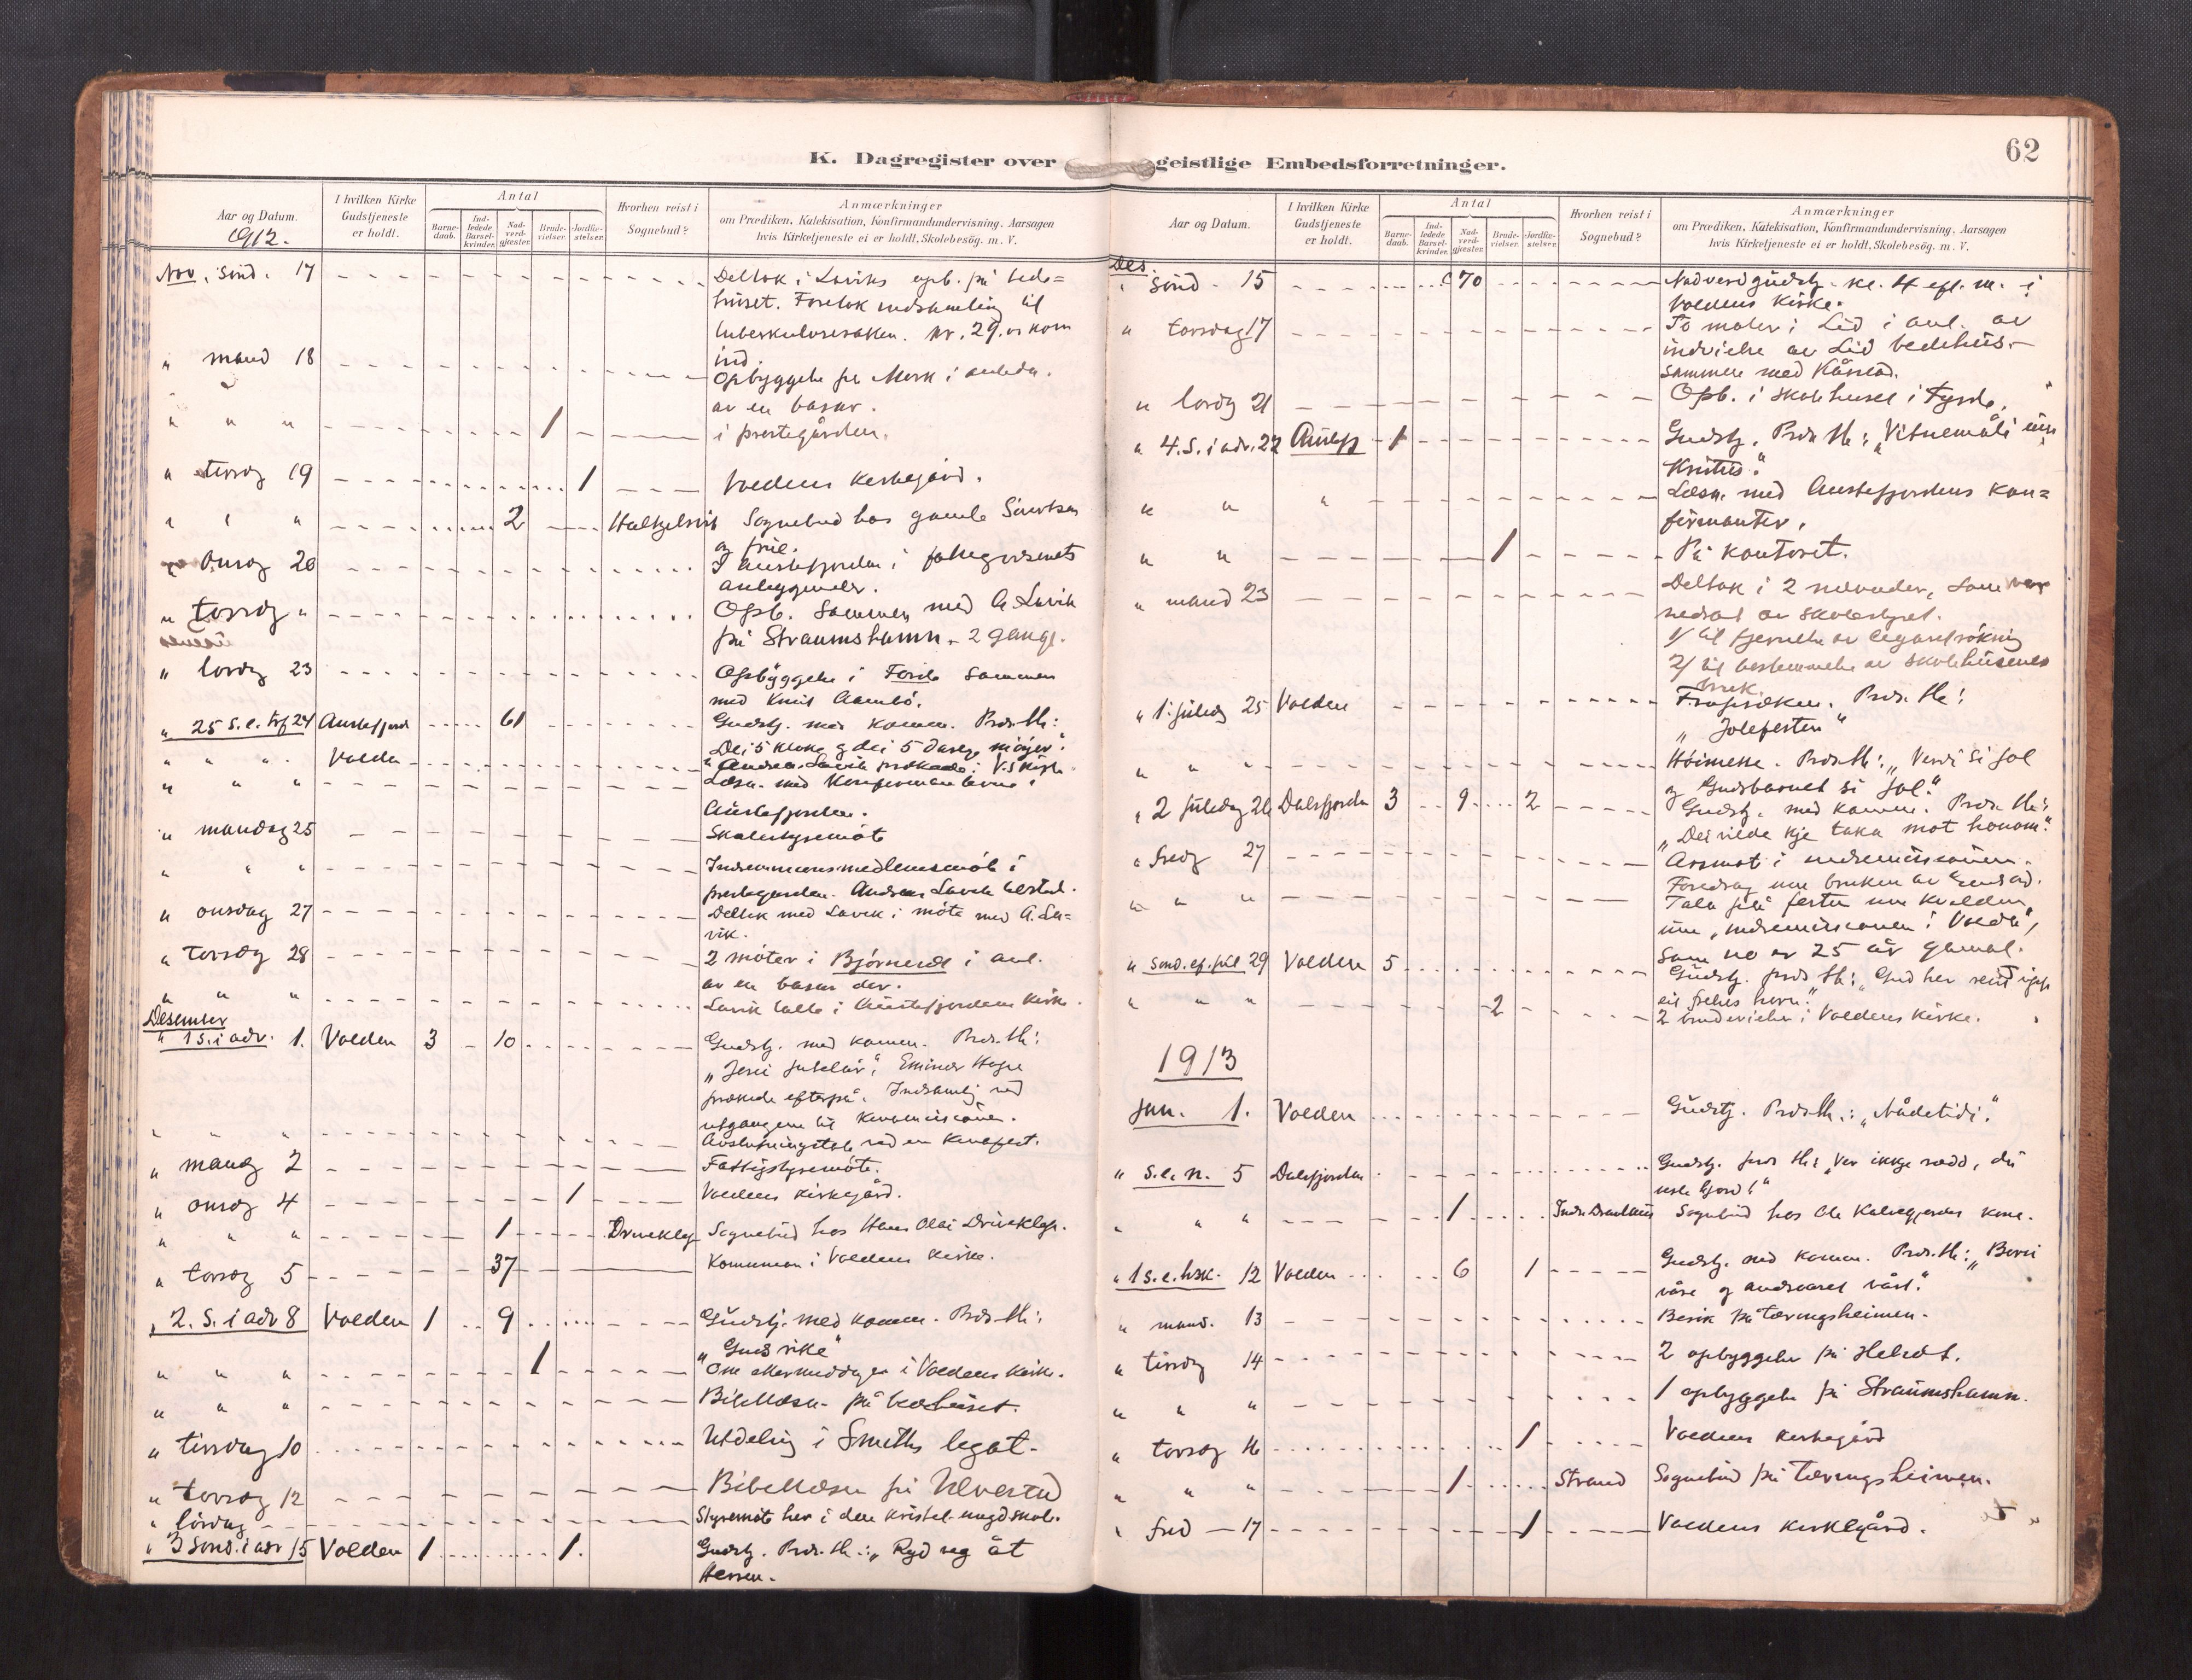 62
K. Dagregister over geistlige Embedsforretninger.
Aar og Datum.
1912.
I hvilken Kirke Gudstjeneste er holdt.
Antal
Barne-daab.
Ind-ledede Barsel-kvinder.
Nad-verd-gjester.
Brude-vielser.
Jordfæ-stelser.
Hvorhen reist i Sognebud?
Anmærkninger
om Prædiken, Katekisation, Konfirmandundervisning, Aarsagen
hvis Kirketjeneste ei er holdt, Skolebesög. m. V.
Nov. Sönd. 17 Deltok i Laviks opb. på bede=
huset. Foretok indsamling til
tuberkulosesaken. kr. 29.
ind.
" mand 18 Opbyggelse
av en basar.
" " " 1 i prestegården.
" tirsdg 19 1 Voldens kirkegård.
" " " 2 Sognebud hos gamle
og frue.
" Onsdg 20 I Austefjorden i
" torsdg " Opb. sammen med A. Lavik
på Straumshamn 2 gange.
" lördg 23 Opbyggelse i sammen
med Knut
" 25 S. e. trf 24 Austefjord 61 Gudstj. med komm. Præd. th:
" Dei 5 kloke og dei 5 möyer".
" " " Volden Andreas Lavik prækede i V.s kirke
" " " Læsn. med konfirmanterne i
Austefjorden.
" mandag 25 Skolestyremöt
" " " Indremissionsmedlemsmöte i
prestegarden. Andreas Lavik
" onsdag 27 Deltok med Lavik i möte med A. La=
vik.
" torsdg 28 2 möter i i anl.
av en basar der.
" " " Lavik talte i Austefjordens kirke.
Desember
" 1 S. i adv. 1. Volden 3 10 Gudstj. med komm. Præd. th:
prækede efterpå. Indsamling ved
utgangene til
" " " Avslutningstale ved en
" mandg 2 Fattigstyremöte.
" onsdg 4 1 Voldens kirkegård.
" " " 1 Sognebud hos Hans Olai
" torsdg 5 37 Kommunion i Voldens kirke.
" 2. S. i adv 8 Volden 1 9 Gudstj. med komm. Præd. th:
" Guds rike"
" " " 1 Om ettermiddagen i Voldens kirke.
" " " Bibellæsn. på bedehuset.
" tirsdag 10 Utdeling i Smiths legat.
" torsdg 12 Bibellæsn på Ulvestad
" lördag Styremöte her i den kristel. ungd.skole.
" 3 Sönd. i adv 15 Volden 1 1. Gudstj. Præd. th: " Ryd veg åt
Herren.
Aar og Datum.
I hvilken Kirke Gudstjeneste er holdt.
Antal
Barne-daab.
Ind-ledede Barsel-kvinder.
Nad-verd-gjester.
Brude-vielser.
Jordfæ-stelser.
Hvorhen reist i Sognebud?
Anmærkninger
om Prædiken, Katekisation, Konfirmandundervisning, Aarsagen
hvis Kirketjeneste ei er holdt, Skolebesög. m. V.
Des.
" Sönd. 15 70 Nadverdgudstj. kl. 4 eft. m. i
Voldens kirke.
" torsdag 17 To möter i Lid i anl. av
indvielse av Lid bedehus.
sammen med Kårstad.
" lördg 21 Opb. i skolehuset i
" 4. S. i adv. 22 Austefj 1 Gudstj. Præd. th: " Vitnemåli um
Kristus".
" " " Læsn. med Austefjordens kon=
firmanter.
" " 1 På kontoret.
" mand 23 Deltok i 2 nevnder, som var
nedsat av skolestyret.
1/ til fjernelse av cigaretrökning
2/ til bestemmelse av skolehusenes
bruk.
" 1. juledg 25 Volden Froprædiken. Præd. th:
" Jolefesten"
" " " Höimesse. Præd. th: " Verdi si jol
og Gudsbarnet si jol".
" 2 juledag 26 Dalsfjorden 3 9 2 Gudstj. med komm. Præd. th:
" Dei vilde kje taka mot honom".
" fredg 27 Årsmöt i indremissionen.
Foredrag um bruken av Guds ord.
" " " Tala på festen um kvelden
um " indremissionen i Volda",
som no er 25 år gamal.
" sönd. ef. jul 29 Volden 5 Gudstj. præd. th: " Gud her reist upp
eit frelses horn".
" " " 2 2 brudevielser i Voldens kirke.
1913
Jan. 1. Volden Gudstj. Præd. th.: " Nådetidi".
" S. e. n. 5 Dalsfjorden Gudstj. præd th: " Ver ikkje rædd, du
vesle hjord!"
" " " 1 Sognebud hos Ole kone.
" 1 S. e. h3k. 12 Volden 6 1 Gudstj. med komm. Præd. th: "
våre og andsvaret vårt".
" mand. 13 Besök på tæringsheimen.
" tirsdg 14 2 opbyggelser på
" " " 1 opbyggelse på Straumshamn.
" torsdg 16 1 Voldens kirkegård
" " " 1 Strand Sognebud på tæringsheimen.
" fred 17 1 Voldens kirkegård.